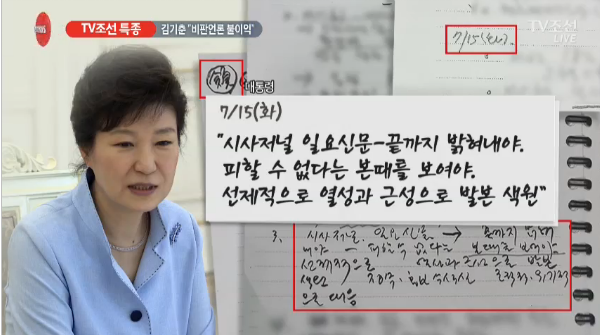 TV조선 특종
김기춘 "비판언론 불이익"
TV조선
LIVE
7/15(화).
대통령
7/15(화)
"시사저널 일요신문-끝까지 밝혀내야.
피할 수 없다는 본때를 보여야.
선제적으로 열성과 근성으로 발본 색원"
3. 시사저널, 일요신문 → 끝까지 밝혀
내야 - 피할수 없다는 본때를 보여야
선제적으로 열성과 근성으로 발본
색원
으로 대응